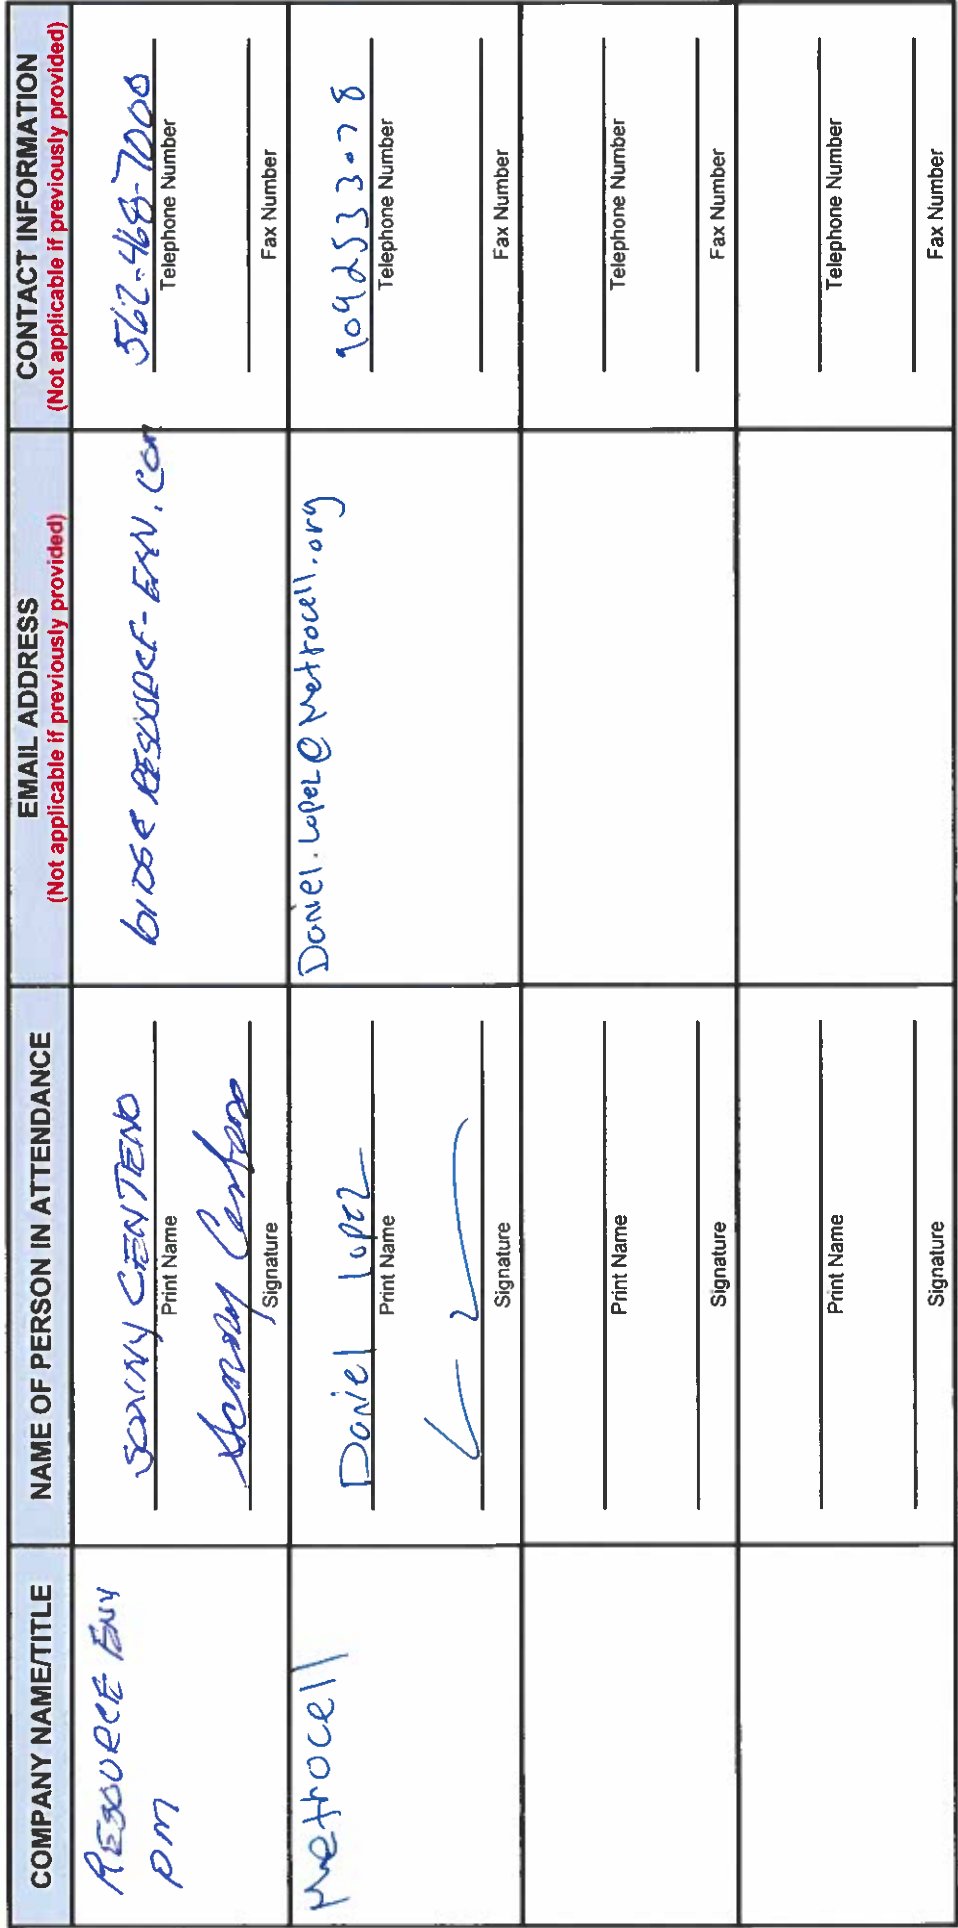 COMPANY NAME/TITLE
NAME OF PERSON IN ATTENDANCE
EMAIL ADDRESS
(Not applicable if previously provided)
CONTACT INFORMATION
(Not applicable if previously provided)
RESOURCE ENV
PM
SONNY CENTENO
Print Name
Sonny Centeno
Signature
BIDS@RESOURCE-ENV.COM
562-468-7000
Telephone Number
Fax Number
Metrocell
Daniel Lopez
Print Name
Signature
Daniel.Lopez@Metrocell.org
9092533078
Telephone Number
Fax Number
Print Name
Signature
Telephone Number
Fax Number
Print Name
Signature
Telephone Number
Fax Number